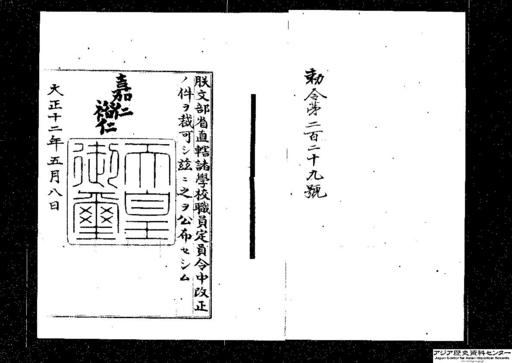 勅令第二百二十九號
朕文部省直轄諸學校職員定員令中改正
ノ件ヲ裁可シ茲ニ之ヲ公布セシム
嘉仁
裕仁
天皇
御璽
大正十二年五月八日
アジア歴史資料センター
Japan Center for Asian Historical Records